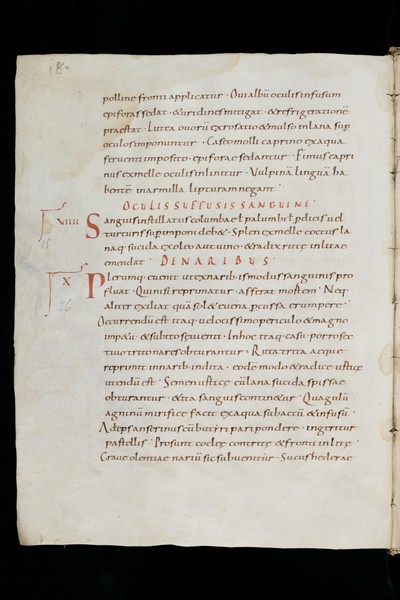 18.
polline fronti applicatur · Oui albū oculis infusum
epiforas sedat · & uridines mitigat · & refrigerationē
praestat · Lutea ouorū ex rosatio & mulso in lana sup
oculos imponuntur · Caseo molli caprino ex aqua
feruenti imposito · epiforae sedantur · Fimus capri
nus ex melle oculis inlinitur · Vulpinā linguā ha
bentē in armilla lipturam negant ·
OCULIS SUFFUSIS SANGUINE ·
VIIII Sanguis instillatus columbae ł palumbi ł pdicis uel
turturis supimponi deb& · Splen ex melle coctus la
naq· sucida ex oleo aut uino · & radix rutę inlitae
emendat · DE NARIBUS ·
X Plerumq· euenit ut ex narib· is modus sanguinis pro
fluat · Qui nisi reprimatur · afferat mortem · Neq·
aliter exiliat quā sol& e uena pcussa erumpere ·
Occurrendū est itaq· uelocissimo periculo & magno
imp&u · & subito seuienti · In hoc itaq· casu porro sec
tiuo trito nares obturantur · Ruta trita aeque
reprimit in narib· indita · eodē modo & radice urticę
utendū est · Semen urticę cū lana sucida spissae
obturantur · & ita sanguis contin&ur · Quagulū
agninū mirifice facit ex aqua subactū & infusū ·
Adeps anserinus cū butiri pari pondere · ingeritur
pastellis · Prosunt cocleę contritę & fronti inlitę ·
Graue olentiae nariū sic subuenitur · Sucus hederae